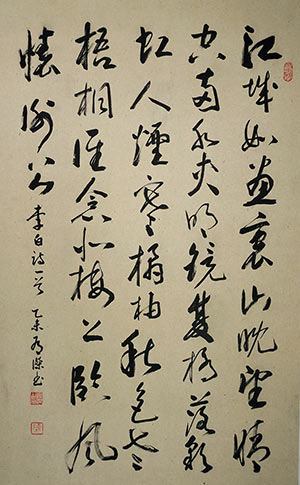 江城如畫裏山晚望晴
空兩水夾明鏡雙橋落彩
虹人煙寒橘柚秋色老
梧桐誰念北樓上臨風
懷謝公
李白詩一首 乙未 書